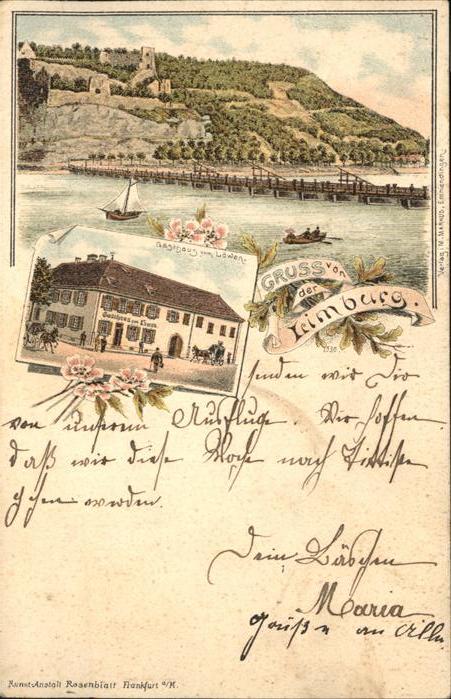 Gasthaus zum Löwen.
Gasthaus zum Löwen
GRUSS von
der
Limburg.
Verlag: M. Markus, Emmendingen.
senden wir Dir
von unserem Ausfluge. Wir hoffen
daß wir diese Woche nach
gehen werden.
Dein Bäschen
Maria
Grüße an Alle
Kunst-Anstalt Rosenblatt Frankfurt a/M.